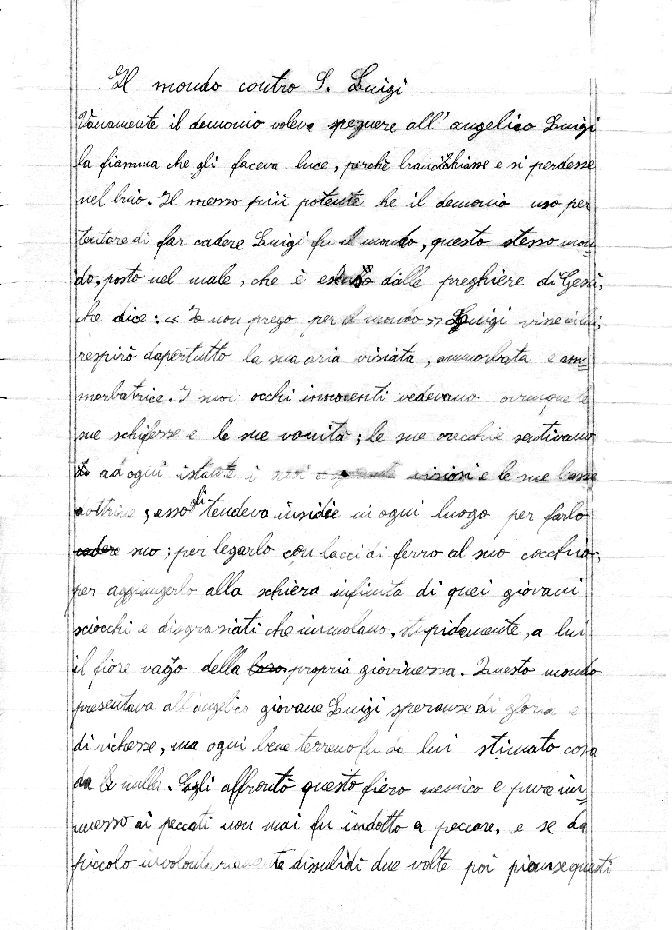 Il mondo contro S. Luigi
Vanamente il demonio voleva spegnere all'angelico Luigi
la fiamma che gli faceva luce, perchè brancichiasse e si perdesse
nel buio. Il messo più potente he il demonio uso per
tentare di far cadere Luigi fu il mondo, questo stesso mon=
do, posto nel male, che è escluso dalle preghiere di Gesù,
che dice: « Io non prego per il mondo » Luigi visse in lui,
respirò dapertutto la sua aria visiata, ammorbata e am=
morbatrice. I suoi occhi innocenti vedevano ovunque le
sue schifesse e le sue vanità; le sue orecchie sentivano
ad ogni istante i suoi e le sue basse
dottrine; esso gli tendeva insidie in ogni luogo per farlo
cadere suo; per legarlo con lacci di ferro al suo cocchio,
per aggiungerlo alla schiera infinita di quei giovani
sciocchi e disgrasiati che immolano, stupidamente, a lui
il fiore vago della loro propria giovinessa. Questo mondo
presentava all'angelico giovane Luigi speranse di gloria e
di richesse, ma ogni bene terreno fu da lui stimato cosa
da nulla. Egli affrontò questo fiero nemico e pure im=
messo ai peccati non mai fu indotto a peccare, e se da
piccolo involontariamente disubidì due volte poi pianse questi